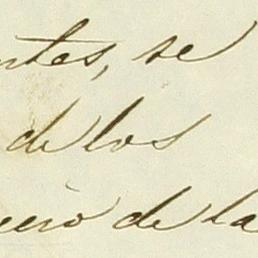 ntes, se
de los
de la